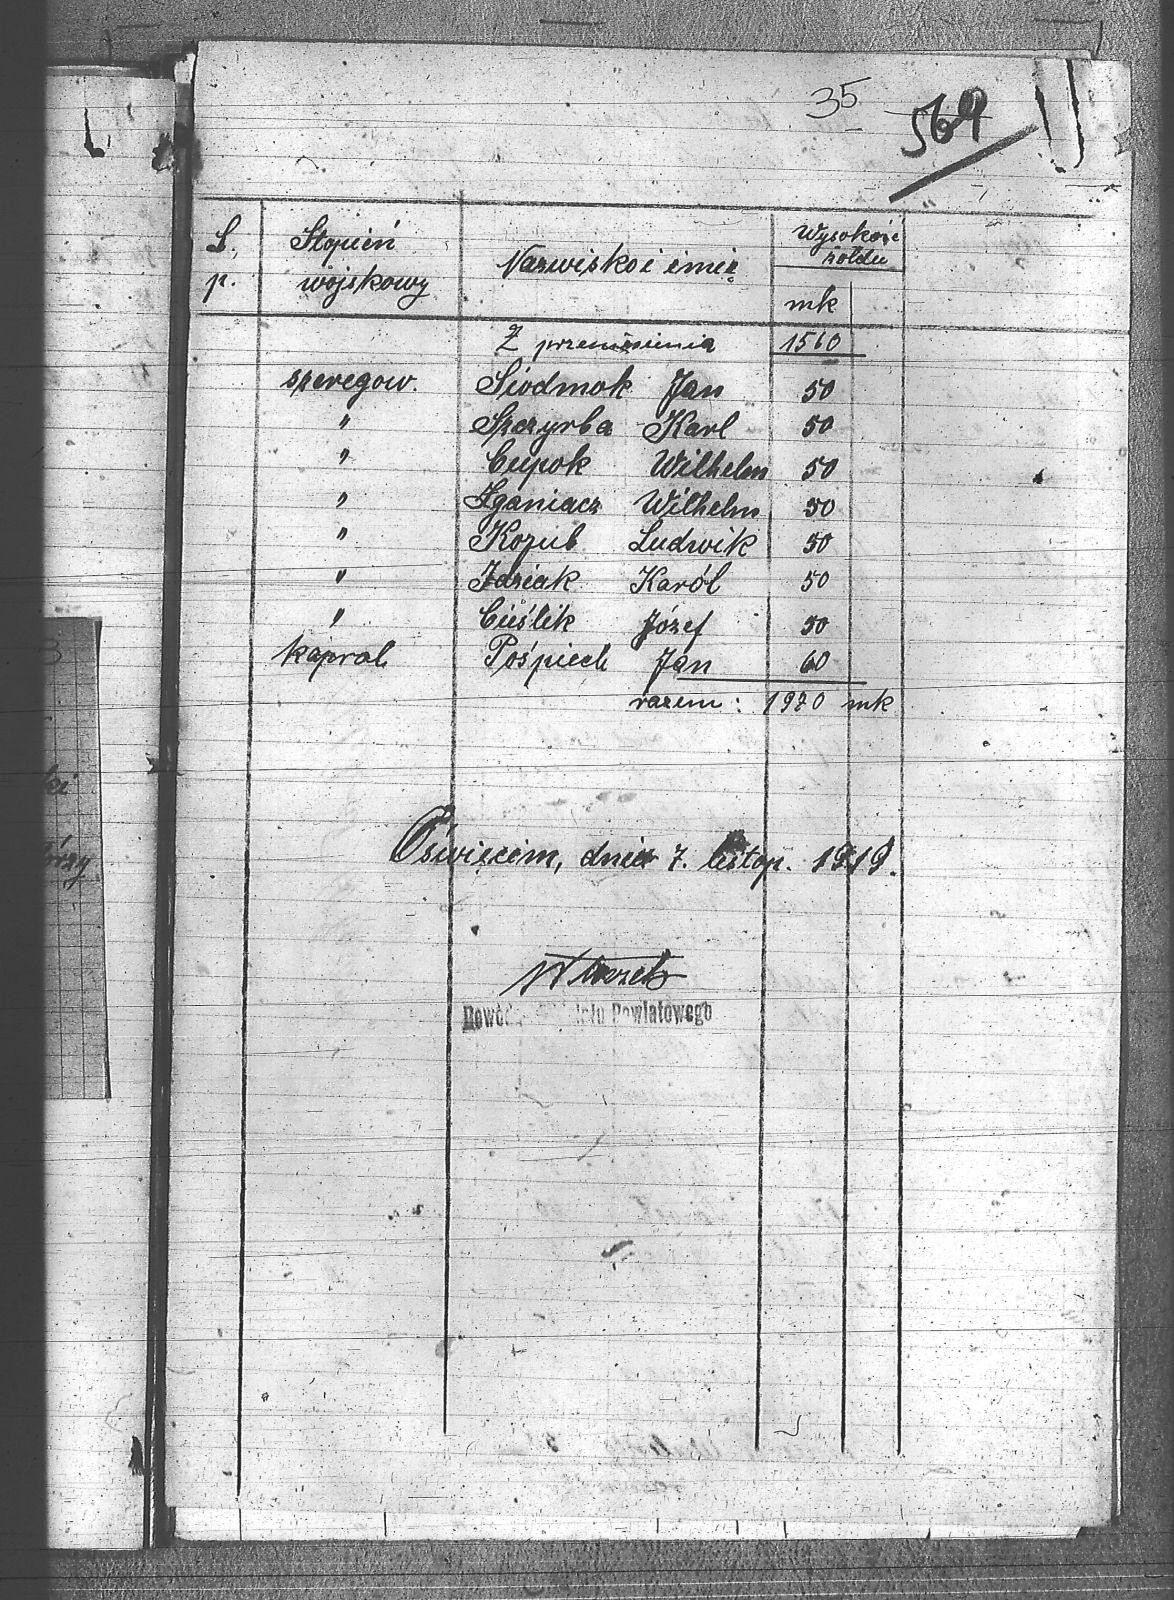 35
564
L. p. Stopień wojskowy Nazwisko i imię Wysokość żołdu mk
Z przeniesienia 1560
szeregow. Siodmok Jan 50
" Szczyrba Karl 50
" Cupok Wilhelm 50
" Zganiacz Wilhelm 50
" Kozub Ludwik 50
" Idziak Karól 50
" Cieślik Józef 50
kapral Pośpiech Jan 60
razem: 1970 mk
Oświęcim, dnia 7. listop. 1919.
Powiatowego